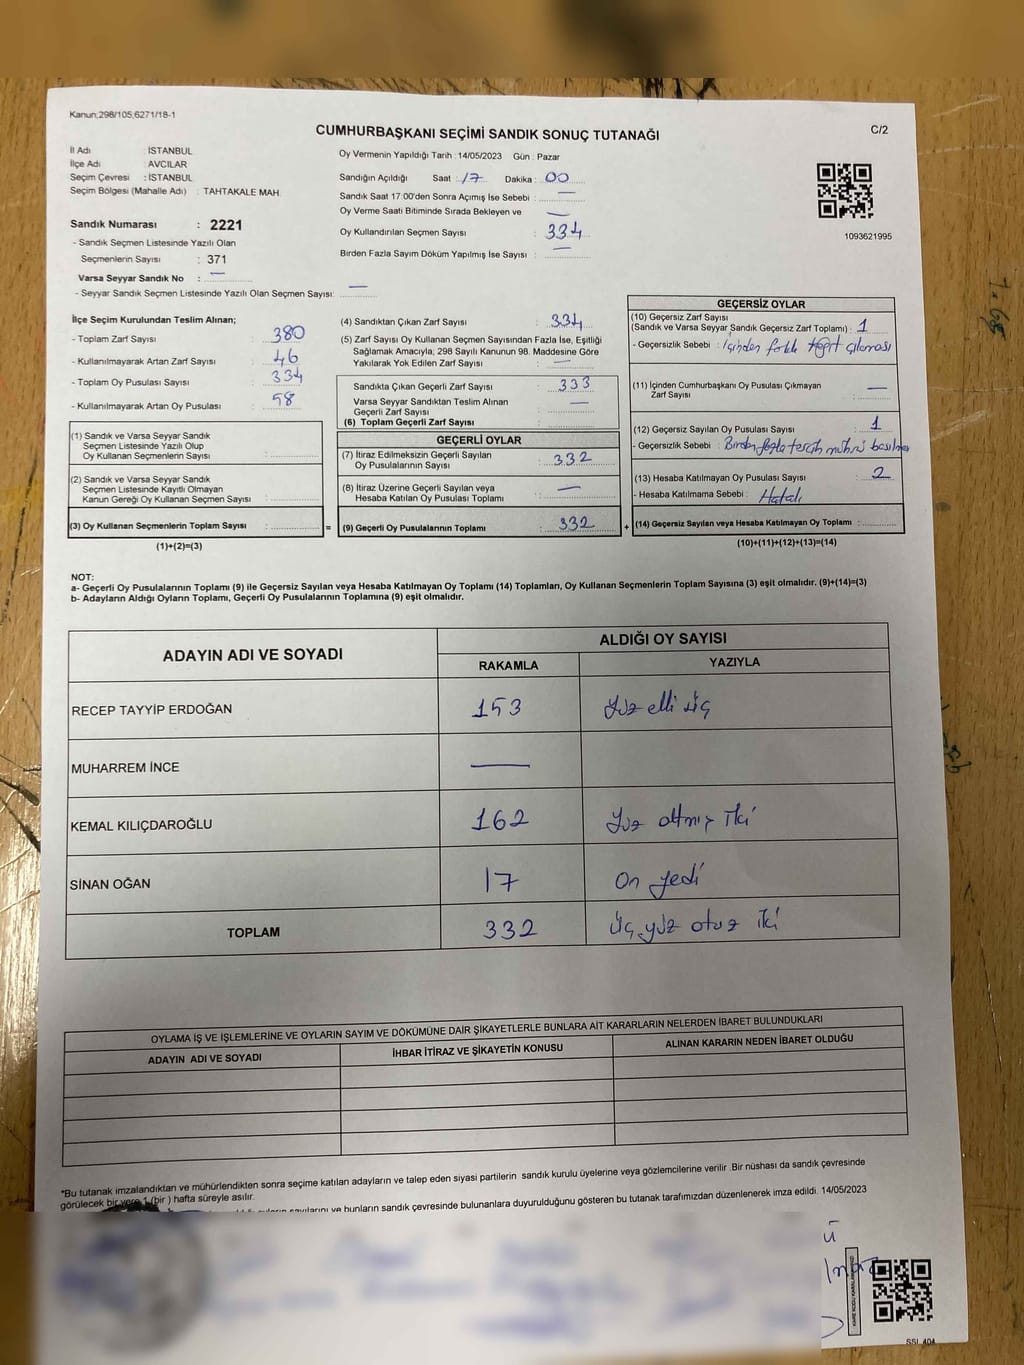 Kanun;298/105;6271/18-1
CUMHURBAŞKANI SEÇİMİ SANDIK SONUÇ TUTANAĞI
C/2
İl Adı : İSTANBUL
İlçe Adı : AVCILAR
Seçim Çevresi : İSTANBUL
Seçim Bölgesi (Mahalle Adı) : TAHTAKALE MAH.
Sandık Numarası : 2221
- Sandık Seçmen Listesinde Yazılı Olan
Seçmenlerin Sayısı : 371
Varsa Seyyar Sandık No : —
- Seyyar Sandık Seçmen Listesinde Yazılı Olan Seçmen Sayısı: —
Oy Vermenin Yapıldığı Tarih : 14/05/2023 Gün : Pazar
Sandığın Açıldığı Saat : 17 Dakika : 00
Sandık Saat 17:00'den Sonra Açımış İse Sebebi : —
Oy Verme Saati Bitiminde Sırada Bekleyen ve
Oy Kullandırılan Seçmen Sayısı : 334
Birden Fazla Sayım Döküm Yapılmış İse Sayısı : —
1093621995
İlçe Seçim Kurulundan Teslim Alınan;
- Toplam Zarf Sayısı : 380
- Kullanılmayarak Artan Zarf Sayısı : 46
- Toplam Oy Pusulası Sayısı : 334
- Kullanılmayarak Artan Oy Pusulası : 58
(1) Sandık ve Varsa Seyyar Sandık
Seçmen Listesinde Yazılı Olup
Oy Kullanan Seçmenlerin Sayısı :
(2) Sandık ve Varsa Seyyar Sandık
Seçmen Listesinde Kayıtlı Olmayan
Kanun Gereği Oy Kullanan Seçmen Sayısı :
(3) Oy Kullanan Seçmenlerin Toplam Sayısı : =
(1)+(2)=(3)
(4) Sandıktan Çıkan Zarf Sayısı : 334
(5) Zarf Sayısı Oy Kullanan Seçmen Sayısından Fazla İse, Eşitliği
Sağlamak Amacıyla; 298 Sayılı Kanunun 98. Maddesine Göre
Yakılarak Yok Edilen Zarf Sayısı : —
Sandıkta Çıkan Geçerli Zarf Sayısı : 333
Varsa Seyyar Sandıktan Teslim Alınan
Geçerli Zarf Sayısı : —
(6) Toplam Geçerli Zarf Sayısı :
GEÇERLİ OYLAR
(7) İtiraz Edilmeksizin Geçerli Sayılan
Oy Pusulalarının Sayısı : 332
(8) İtiraz Üzerine Geçerli Sayılan veya
Hesaba Katılan Oy Pusulası Toplamı : —
(9) Geçerli Oy Pusulalarının Toplamı : 332 +
GEÇERSİZ OYLAR
(10) Geçersiz Zarf Sayısı
(Sandık ve Varsa Seyyar Sandık Geçersiz Zarf Toplamı) : 1
- Geçersizlik Sebebi : İçinden çıkması
(11) İçinden Cumhurbaşkanı Oy Pusulası Çıkmayan
Zarf Sayısı : —
(12) Geçersiz Sayılan Oy Pusulası Sayısı : 1
- Geçersizlik Sebebi : Birden fazla tercih mührü basılması
(13) Hesaba Katılmayan Oy Pusulası Sayısı : 2
- Hesaba Katılmama Sebebi : Hatalı
(14) Geçersiz Sayılan veya Hesaba Katılmayan Oy Toplamı :
(10)+(11)+(12)+(13)=(14)
NOT:
a- Geçerli Oy Pusulalarının Toplamı (9) ile Geçersiz Sayılan veya Hesaba Katılmayan Oy Toplamı (14) Toplamları, Oy Kullanan Seçmenlerin Toplam Sayısına (3) eşit olmalıdır. (9)+(14)=(3)
b- Adayların Aldığı Oyların Toplamı, Geçerli Oy Pusulalarının Toplamına (9) eşit olmalıdır.
ADAYIN ADI VE SOYADI
ALDIĞI OY SAYISI
RAKAMLA YAZIYLA
RECEP TAYYİP ERDOĞAN 153 Yüz elli üç
MUHARREM İNCE —
KEMAL KILIÇDAROĞLU 162 Yüz altmış iki
SİNAN OĞAN 17 On yedi
TOPLAM 332 Üç yüz otuz iki
OYLAMA İŞ VE İŞLEMLERİNE VE OYLARIN SAYIM VE DÖKÜMÜNE DAİR ŞİKAYETLERLE BUNLARA AİT KARARLARIN NELERDEN İBARET BULUNDUKLARI
ADAYIN ADI VE SOYADI İHBAR İTİRAZ VE ŞİKAYETİN KONUSU ALINAN KARARIN NEDEN İBARET OLDUĞU
*Bu tutanak imzalandıktan ve mühürlendikten sonra seçime katılan adayların ve talep eden siyasi partilerin sandık kurulu üyelerine veya gözlemcilerine verilir .Bir nüshası da sandık çevresinde
görülecek bir yere 1 (bir ) hafta süreyle asılır.
sayılarını ve bunların sandık çevresinde bulunanlara duyurulduğunu gösteren bu tutanak tarafımızdan düzenlenerek imza edildi. 14/05/2023
SSI 404